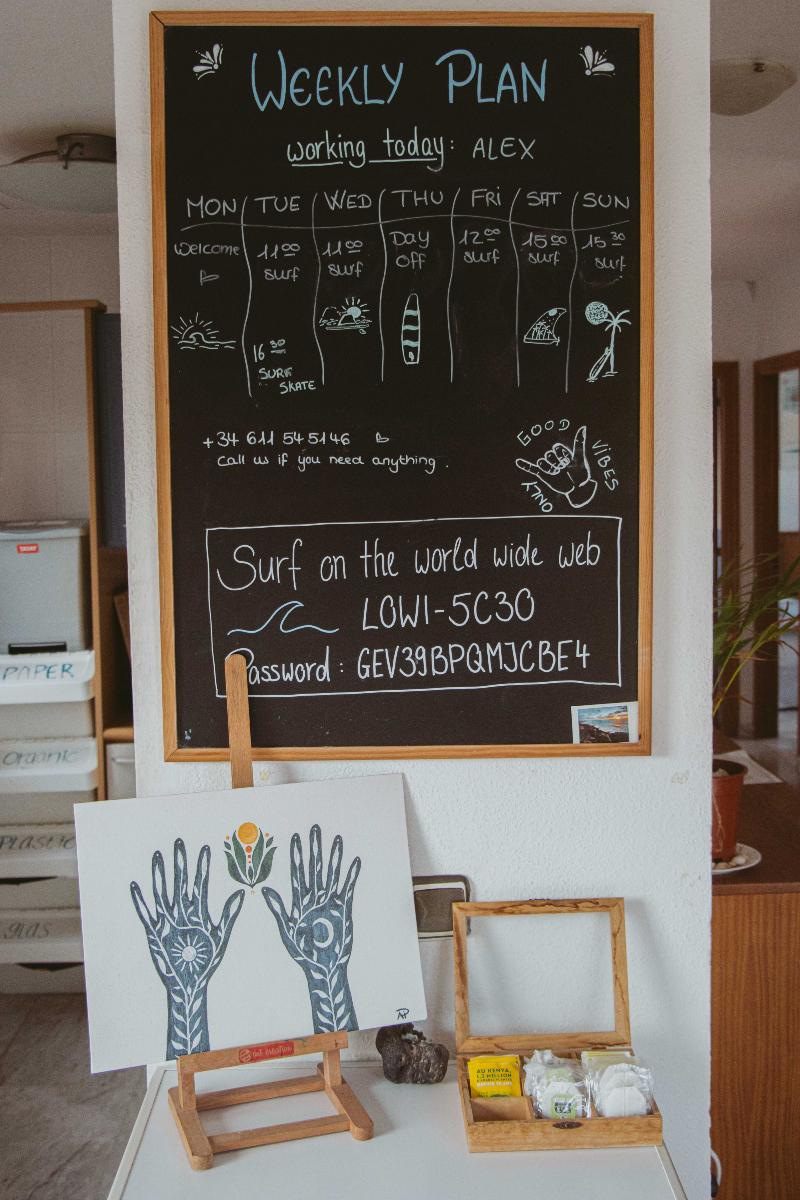 WEEKLY PLAN
working today: ALEX
MON TUE WED THU FRI SAT SUN
Welcome 11 00 surf 11 00 surf Day off 12 00 surf 15 00 surf 15 30 surf
16 30
SURF
SKATE
+34 611 545146
call us if you need anything.
GOOD
VIBES
ONLY
Surf on the world wide web
LOWI-5C30
Password: GEV39BPQMJCBE4
PAPER
Organic
PLASTIC
GLAS
AP
AU KENYA,
1,2 MILLION